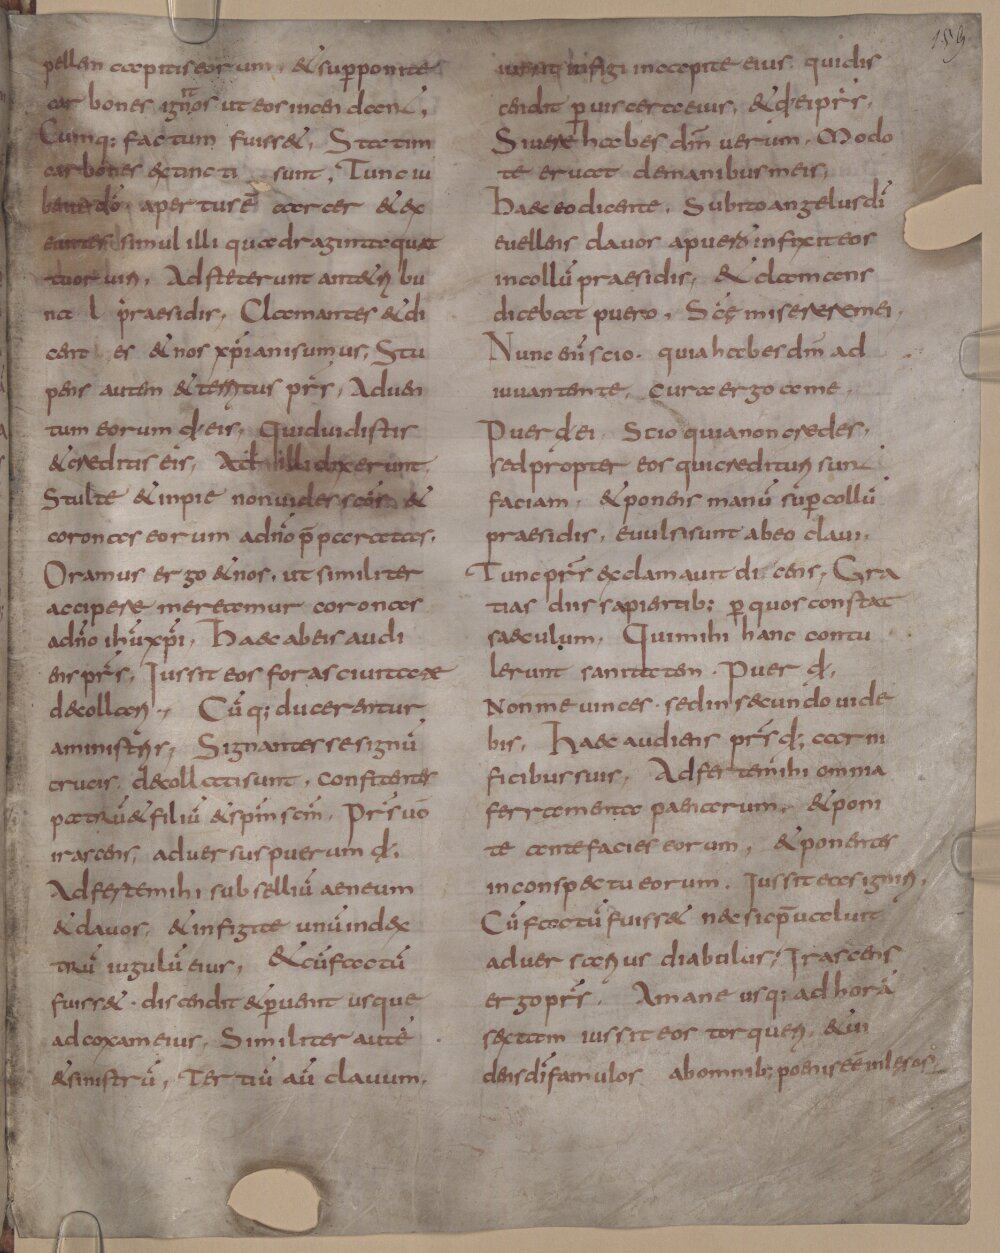 159
pellem capitis eorum, & supponite
carbones ignitos ut eos incendant,
Cumq; factum fuiss&, Statim
carbones extincti sunt, Tunc iu
apertus ÷ carcer & ex
euntes simul illi quadraginta quat
tuor uiri, Adsteterunt ante tribu
nal praesidis, Clamantes & di
centes & nos xp̄iani sumus, Stu
pens autem & territus pr̄s, Aduen
tum eorum d̄ eis, Quid uidistis
& creditis eis, Ad illi dixerunt,
Stulte & inpie non uides scōs &
coronas eorum ad n̄o p̄paratas,
Oramus ergo & nos, ut similiter
accipere meremur coronas
ad n̄o ih̄u xp̄i, Haec ab eis audi
ens pr̄s, Iussit eos foras ciuitate
decollari, Cū q; ducerentur
a ministris, Signantes se signū
crucis, decollati sunt, confitentes
patrē & filiū & sp̄m scm̄, Pr̄s uō
irascens, aduersus puerum d̄,
Adferte mihi subselliū aeneum
& clauos, & infigite unū in dex
trū iugulū eius, & cū factū
fuiss&, discendit & puenit usque
ad coxam eius, Similiter autē
& sinistrū, Tertiū aū clauum,
infigi in capite eius, qui dis
cendit p uiscera eius, & d̄ ei pr̄s,
Si uere habes dm̄ uerum, Modo
te eruat de manibus meis,
Haec eo dicente, Subito angelus dī
euellens clauos a puero infixit eos
in collū praesidis, & clamans
dicebat puero, Scē miserere mei,
Nunc enī scio, quia habes dm̄ ad
iuuantem te, cura ergo a me,
Puer d̄ ei, Scio quia non credes,
sed propter eos qui credituri sunt
faciam, & ponens manū sup collū
praesidis, euulsi sunt ab eo claui,
Tunc pr̄s exclamauit dicens, Gra
tias diis sapientib; p quos constat
saeculum, Qui mihi hanc contu
lerunt sanitatem, Puer d̄,
Non me uinces, sed in secundo uide
bis, Haec audiens pr̄s d̄, carni
ficibus suis, Adferte mihi omnia
ferramenta paenarum, & poni
te ante facies eorum, & ponentes
in conspectu eorum, Iussit eos igniri,
Cū factū fuiss& nec sic p̄ualuit
aduer sanctus diabulus, Irascens
ergo pr̄s, A mane usq; ad horā
sextam iussit eos torqueri, & ui
dens dī famulos ab omnib; poenis eē inlesos,